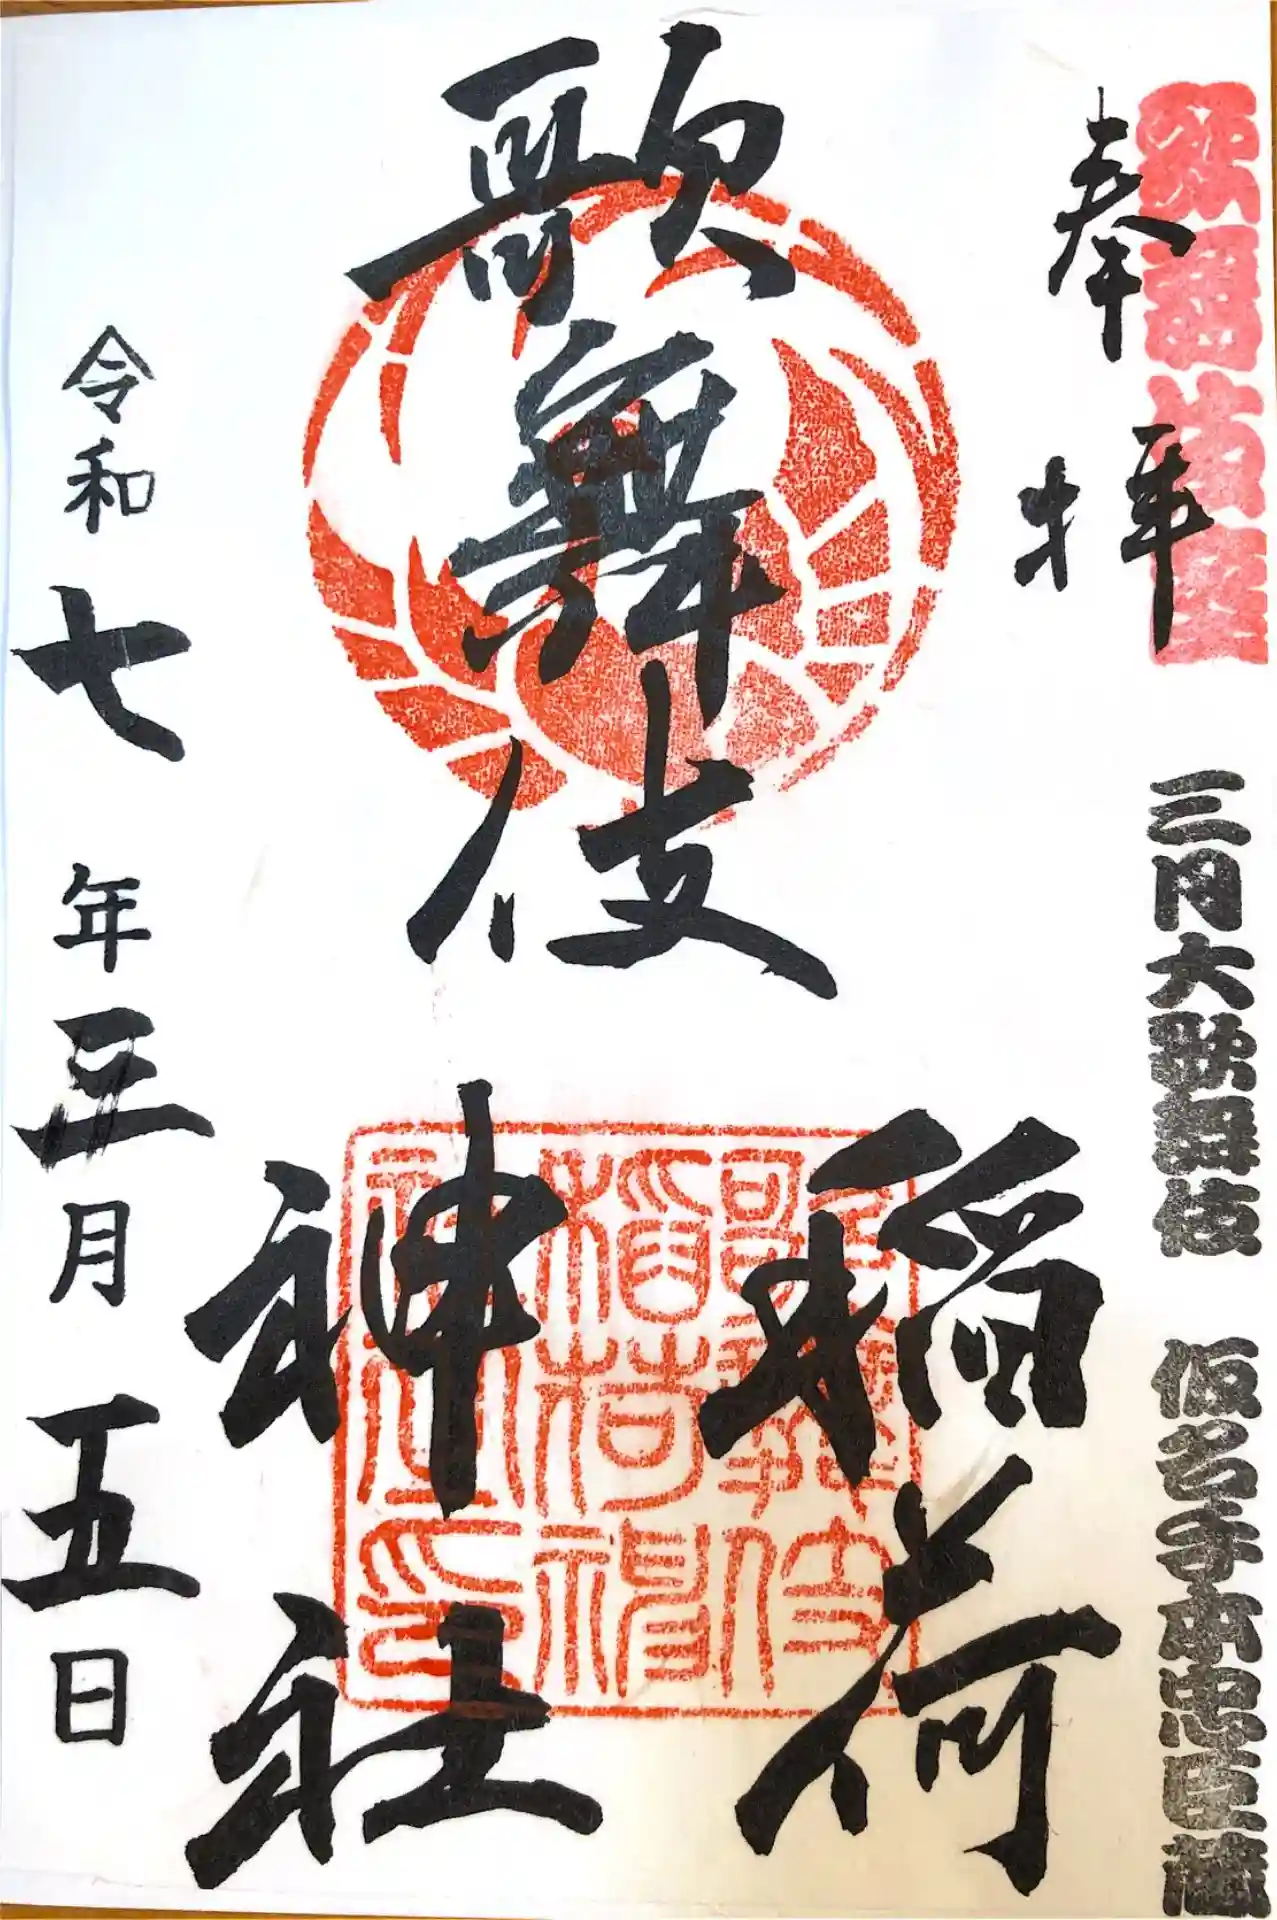 歌舞伎座
奉拝
三月大歌舞伎 仮名手本忠臣蔵
歌舞伎
稲荷
神社
歌舞伎
稲荷神
社之印
令和七年三月五日